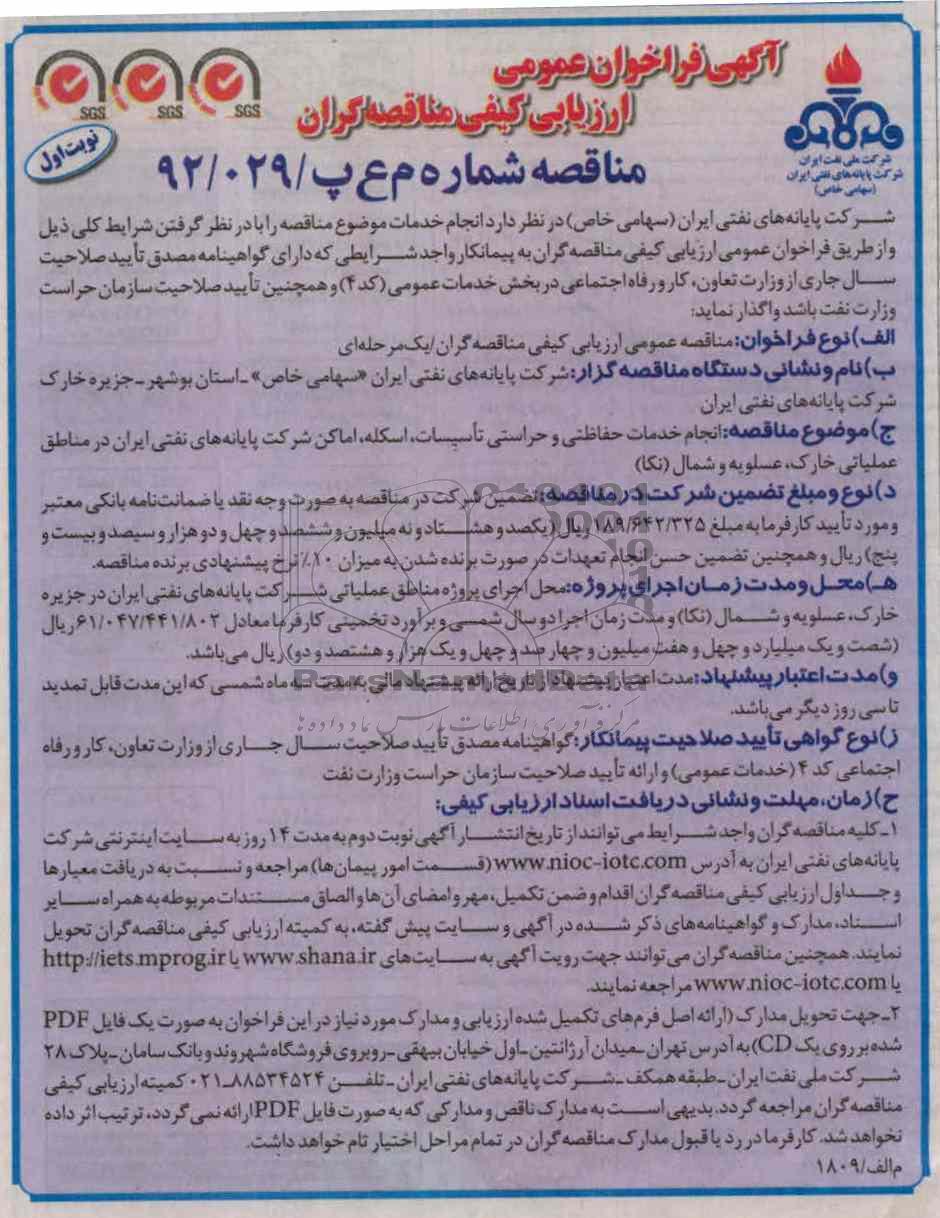 آگهی فراخوان عمومی
ارزیابی کیفی مناقصه گران
SGS SGS SGS
نوبت اول
مناقصه شماره م ع پ/۹۲/۰۲۹
شرکت ملی نفت ایران
شرکت پایانه‌های نفتی ایران
(سهامی خاص)
شرکت پایانه‌های نفتی ایران (سهامی خاص) در نظر دارد انجام خدمات موضوع مناقصه را با در نظر گرفتن شرایط کلی ذیل
و از طریق فراخوان عمومی ارزیابی کیفی مناقصه گران به پیمانکار واجد شرایطی که دارای گواهینامه مصدق تأیید صلاحیت
سال جاری از وزارت تعاون، کار و رفاه اجتماعی در بخش خدمات عمومی (کد ۴) و همچنین تأیید صلاحیت سازمان حراست
وزارت نفت باشد واگذار نماید:
الف) نوع فراخوان: مناقصه عمومی ارزیابی کیفی مناقصه گران/یک‌مرحله‌ای
ب) نام و نشانی دستگاه مناقصه گزار: شرکت پایانه‌های نفتی ایران «سهامی خاص» ـ استان بوشهر ـ جزیره خارک
شرکت پایانه‌های نفتی ایران
ج) موضوع مناقصه: انجام خدمات حفاظتی و حراستی تأسیسات، اسکله، اماکن شرکت پایانه‌های نفتی ایران در مناطق
عملیاتی خارک، عسلویه و شمال (نکا)
د) نوع و مبلغ تضمین شرکت در مناقصه: تضمین شرکت در مناقصه به صورت وجه نقد یا ضمانت‌نامه بانکی معتبر
و مورد تأیید کارفرما به مبلغ ۱۸۹/۶۴۲/۳۲۵ ریال (یکصد و هشتاد و نه میلیون و ششصد و چهل و دو هزار و سیصد و بیست و
پنج) ریال و همچنین تضمین حسن انجام تعهدات در صورت برنده شدن به میزان ۱۰٪ نرخ پیشنهادی برنده مناقصه.
هـ) محل و مدت زمان اجرای پروژه: محل اجرای پروژه مناطق عملیاتی شرکت پایانه‌های نفتی ایران در جزیره
خارک، عسلویه و شمال (نکا) و مدت زمان اجرا دو سال شمسی و برآورد تخمینی کارفرما معادل ۶۱/۰۴۷/۴۴۱/۸۰۲ ریال
(شصت و یک میلیارد و چهل و هفت میلیون و چهار صد و چهل و یک هزار و هشتصد و دو) ریال می‌باشد.
و) مدت اعتبار پیشنهاد: مدت اعتبار پیشنهاد از تاریخ ارائه پیشنهاد مالی به مدت سه ماه شمسی که این مدت قابل تمدید
تا سی روز دیگر می‌باشد.
ParsNamadData
مرکز فرآوری اطلاعات پارس نماد داده‌ها
ز) نوع گواهی تأیید صلاحیت پیمانکار: گواهینامه مصدق تأیید صلاحیت سال جاری از وزارت تعاون، کار و رفاه
اجتماعی کد ۴ (خدمات عمومی) و ارائه تأیید صلاحیت سازمان حراست وزارت نفت
ح) زمان، مهلت و نشانی دریافت اسناد ارزیابی کیفی:
۱ـ کلیه مناقصه گران واجد شرایط می‌توانند از تاریخ انتشار آگهی نوبت دوم به مدت ۱۴ روز به سایت اینترنتی شرکت
پایانه‌های نفتی ایران به آدرس www.nioc-iotc.com (قسمت امور پیمان‌ها) مراجعه و نسبت به دریافت معیارها
و جداول ارزیابی کیفی مناقصه گران اقدام و ضمن تکمیل، مهر و امضای آن‌ها و الصاق مستندات مربوطه به همراه سایر
اسناد، مدارک و گواهینامه‌های ذکر شده در آگهی و سایت پیش گفته، به کمیته ارزیابی کیفی مناقصه گران تحویل
نمایند. همچنین مناقصه گران می‌توانند جهت رویت آگهی به سایت‌های www.shana.ir یا http://iets.mprog.ir
یا www.nioc-iotc.com مراجعه نمایند.
۲ـ جهت تحویل مدارک (ارائه اصل فرم‌های تکمیل شده ارزیابی و مدارک مورد نیاز در این فراخوان به صورت یک فایل PDF
شده بر روی یک CD) به آدرس تهران ـ میدان آرژانتین ـ اول خیابان بیهقی ـ روبروی فروشگاه شهروند و بانک سامان ـ پلاک ۲۸
شرکت ملی نفت ایران ـ طبقه همکف ـ شرکت پایانه‌های نفتی ایران ـ تلفن ۸۸۵۳۴۵۲۴ـ۰۲۱ کمیته ارزیابی کیفی
مناقصه گران مراجعه گردد. بدیهی است به مدارک ناقص و مدارکی که به صورت فایل PDF ارائه نمی گردد، ترتیب اثر داده
نخواهد شد. کارفرما در رد یا قبول مدارک مناقصه گران در تمام مراحل اختیار تام خواهد داشت.
م الف/۱۸۰۹